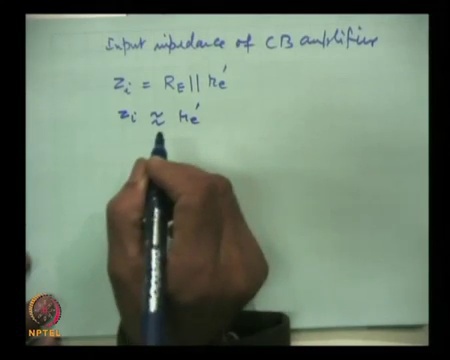 Input impedance of CB amplifier
Zi = RE || re'
Zi ≈ re'
NPTEL